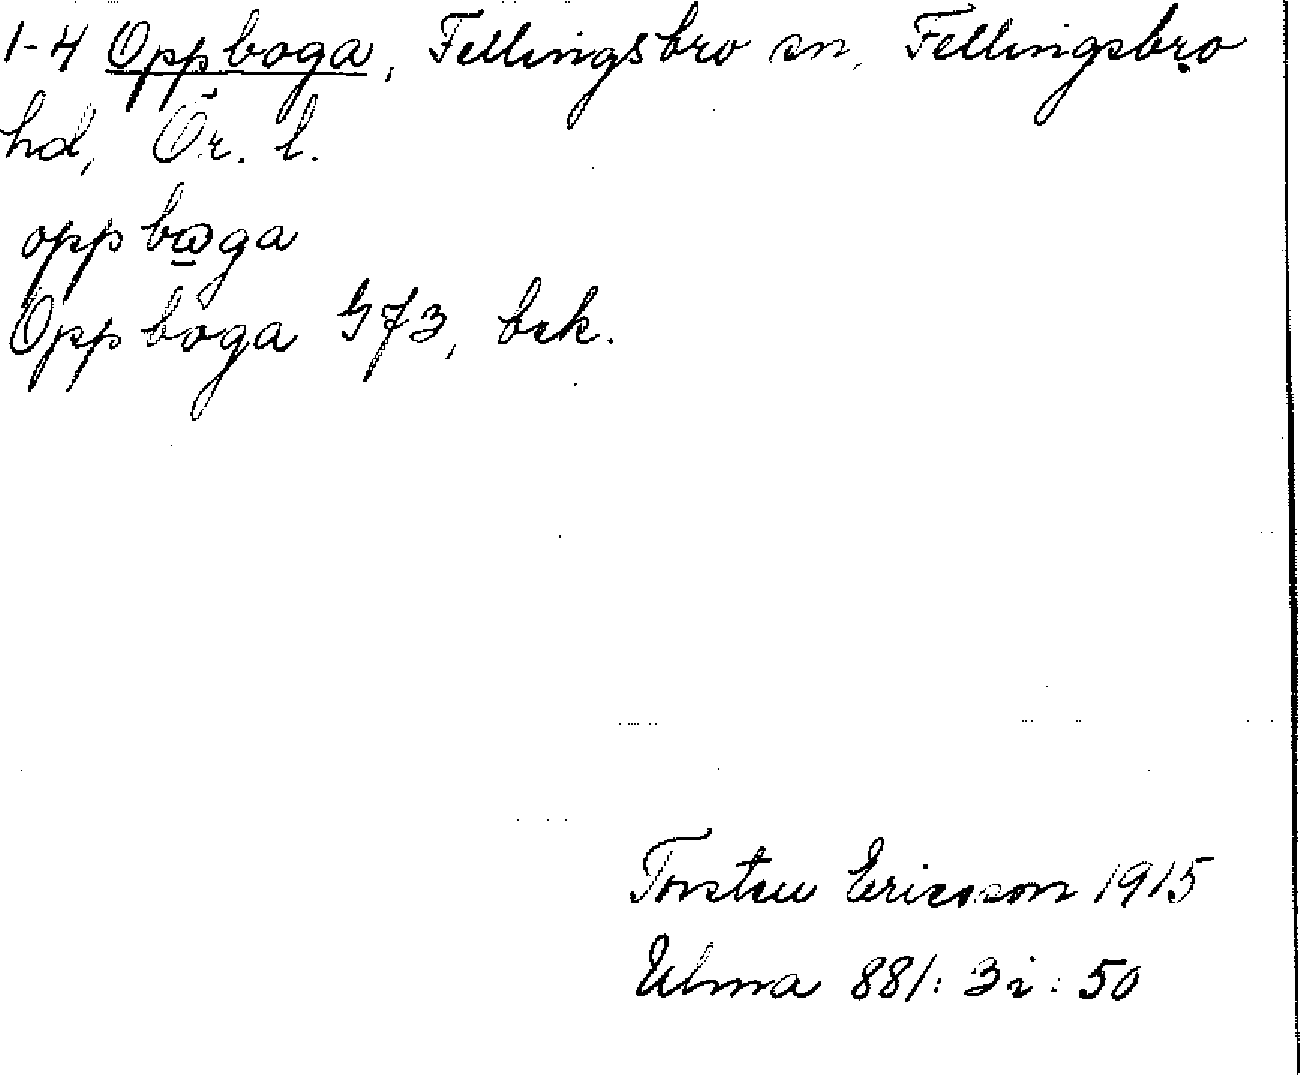 1-4 Oppboga, Fellingsbro sn, Fellingsbro
hd, Ör. l.
oppbωga
Oppboga G73, bek.
Torsten Ericsson 1915
Ulma 881:3i:50